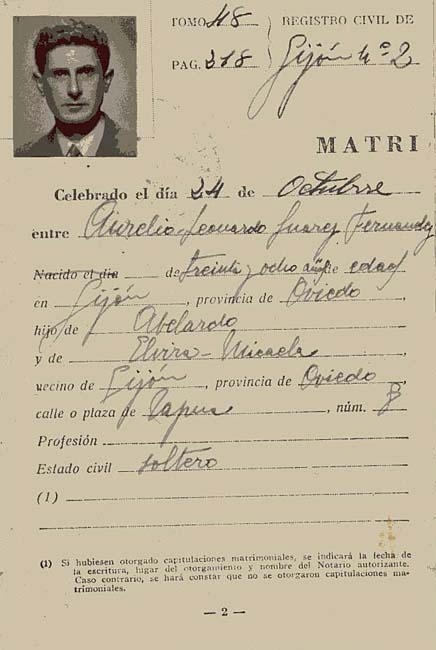 TOMO 48 REGISTRO CIVIL DE
PAG. 318 Gijón nº 2
MATRI
Celebrado el día 24 de Octubre
entre Aurelio Leonardo Suarez Fernandez
Nacido el día de treinta y ocho años de edad
en Gijón, provincia de Oviedo,
hijo de Abelardo
y de Elvira-Micaela
vecino de Gijón, provincia de Oviedo,
calle o plaza de , núm. 8
Profesión
Estado civil soltero
(1)
(1) Si hubiesen otorgado capitulaciones matrimoniales, se indicará la fecha de
la escritura, lugar del otorgamiento y nombre del Notario autorizante.
Caso contrario, se hará constar que no se otorgaron capitulaciones ma-
trimoniales.
— 2 —